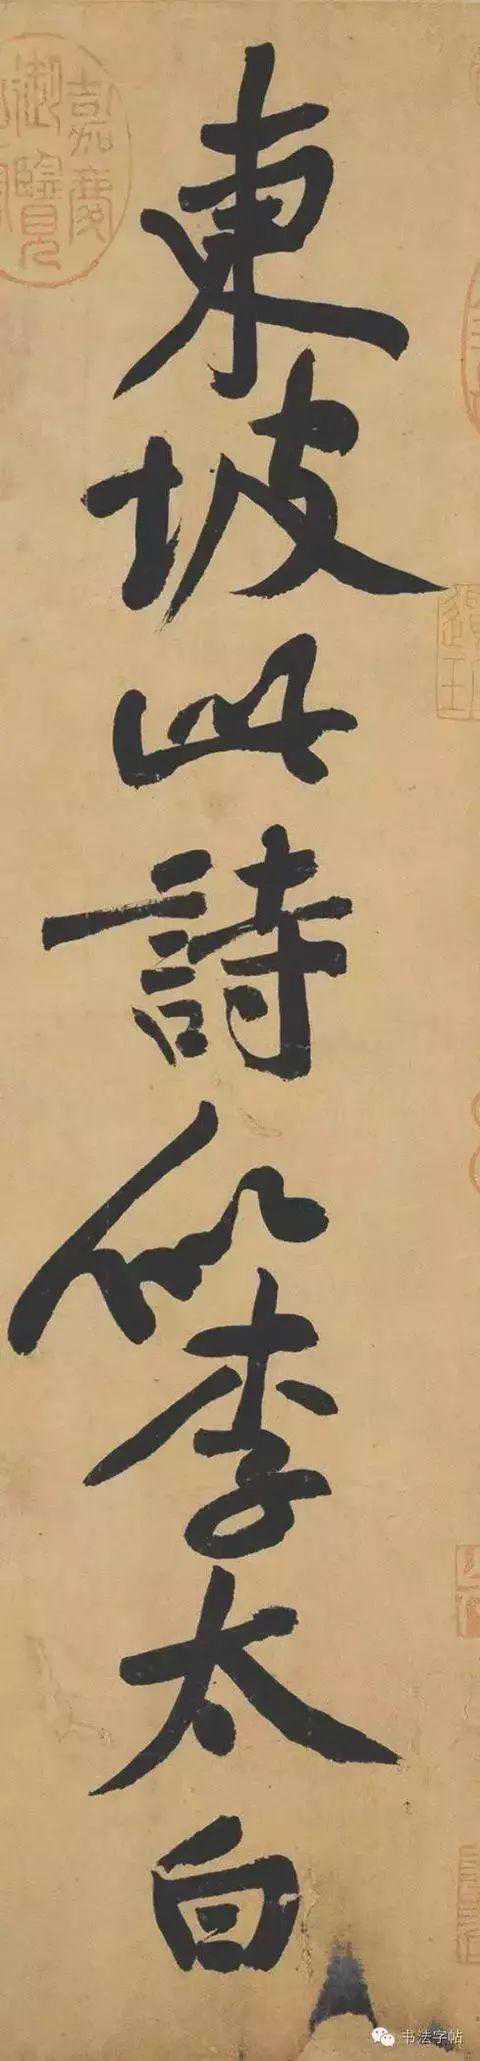 東坡此詩似李太白
嘉慶
御覽
书法字帖